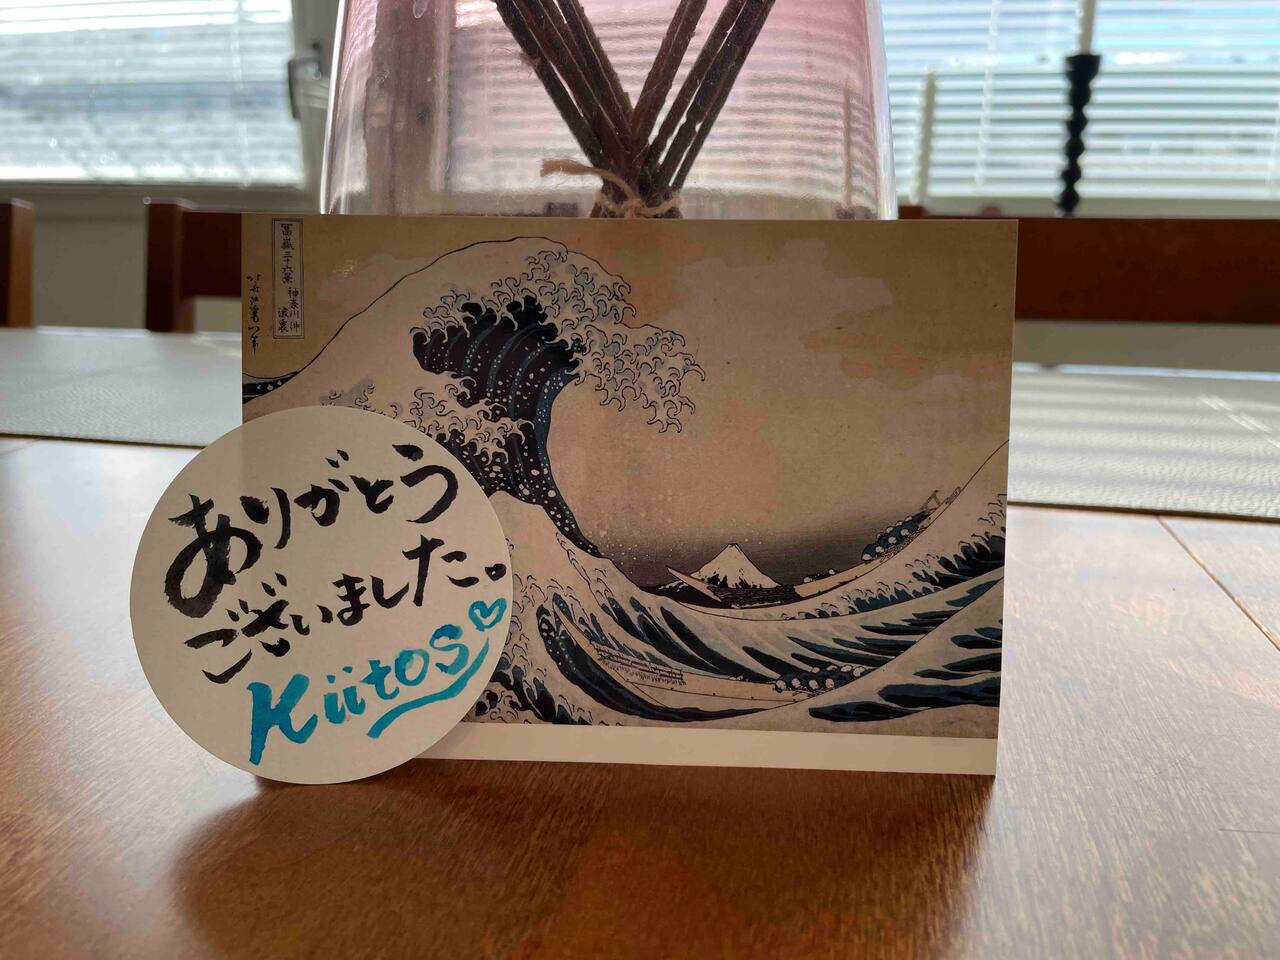 冨嶽三十六景 神奈川沖
浪裏
ありがとう
ございました。
Kiitos